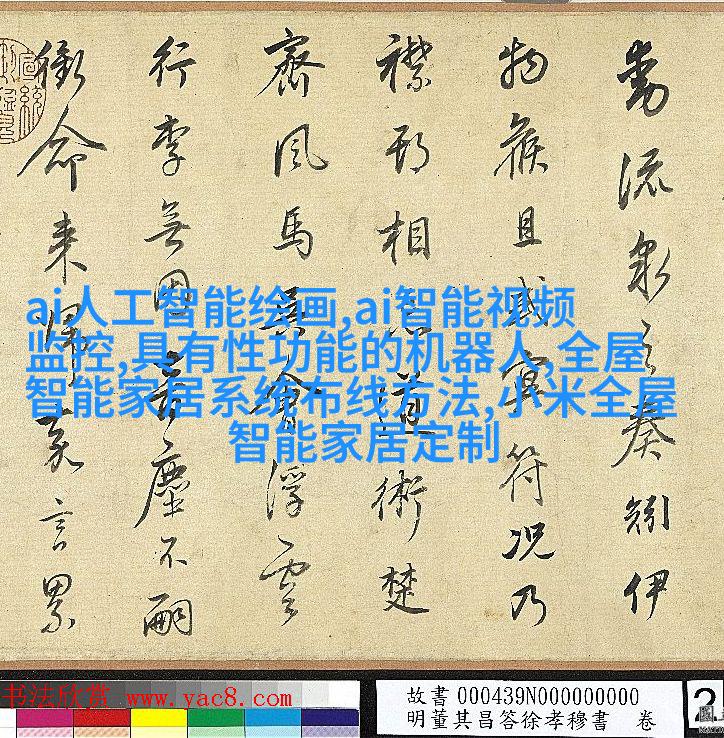 流之奏矧伊
物候且冥符况乃
襟期相道術楚
齊風馬浮雲
行李無因音塵不嗣
銜命来歸嘉言累
ai人工智能绘画,ai智能视频
监控,具有性功能的机器人,全屋
智能家居系统布线方法,小米全屋
智能家居定制
书法欣赏 www.yac8.com
故書 000439N000000000
明董其昌答徐孝穆書 卷
2